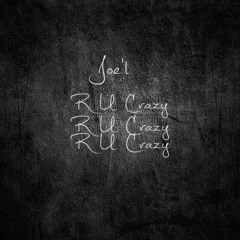 Joe'l
R U Crazy
R U Crazy
R U Crazy